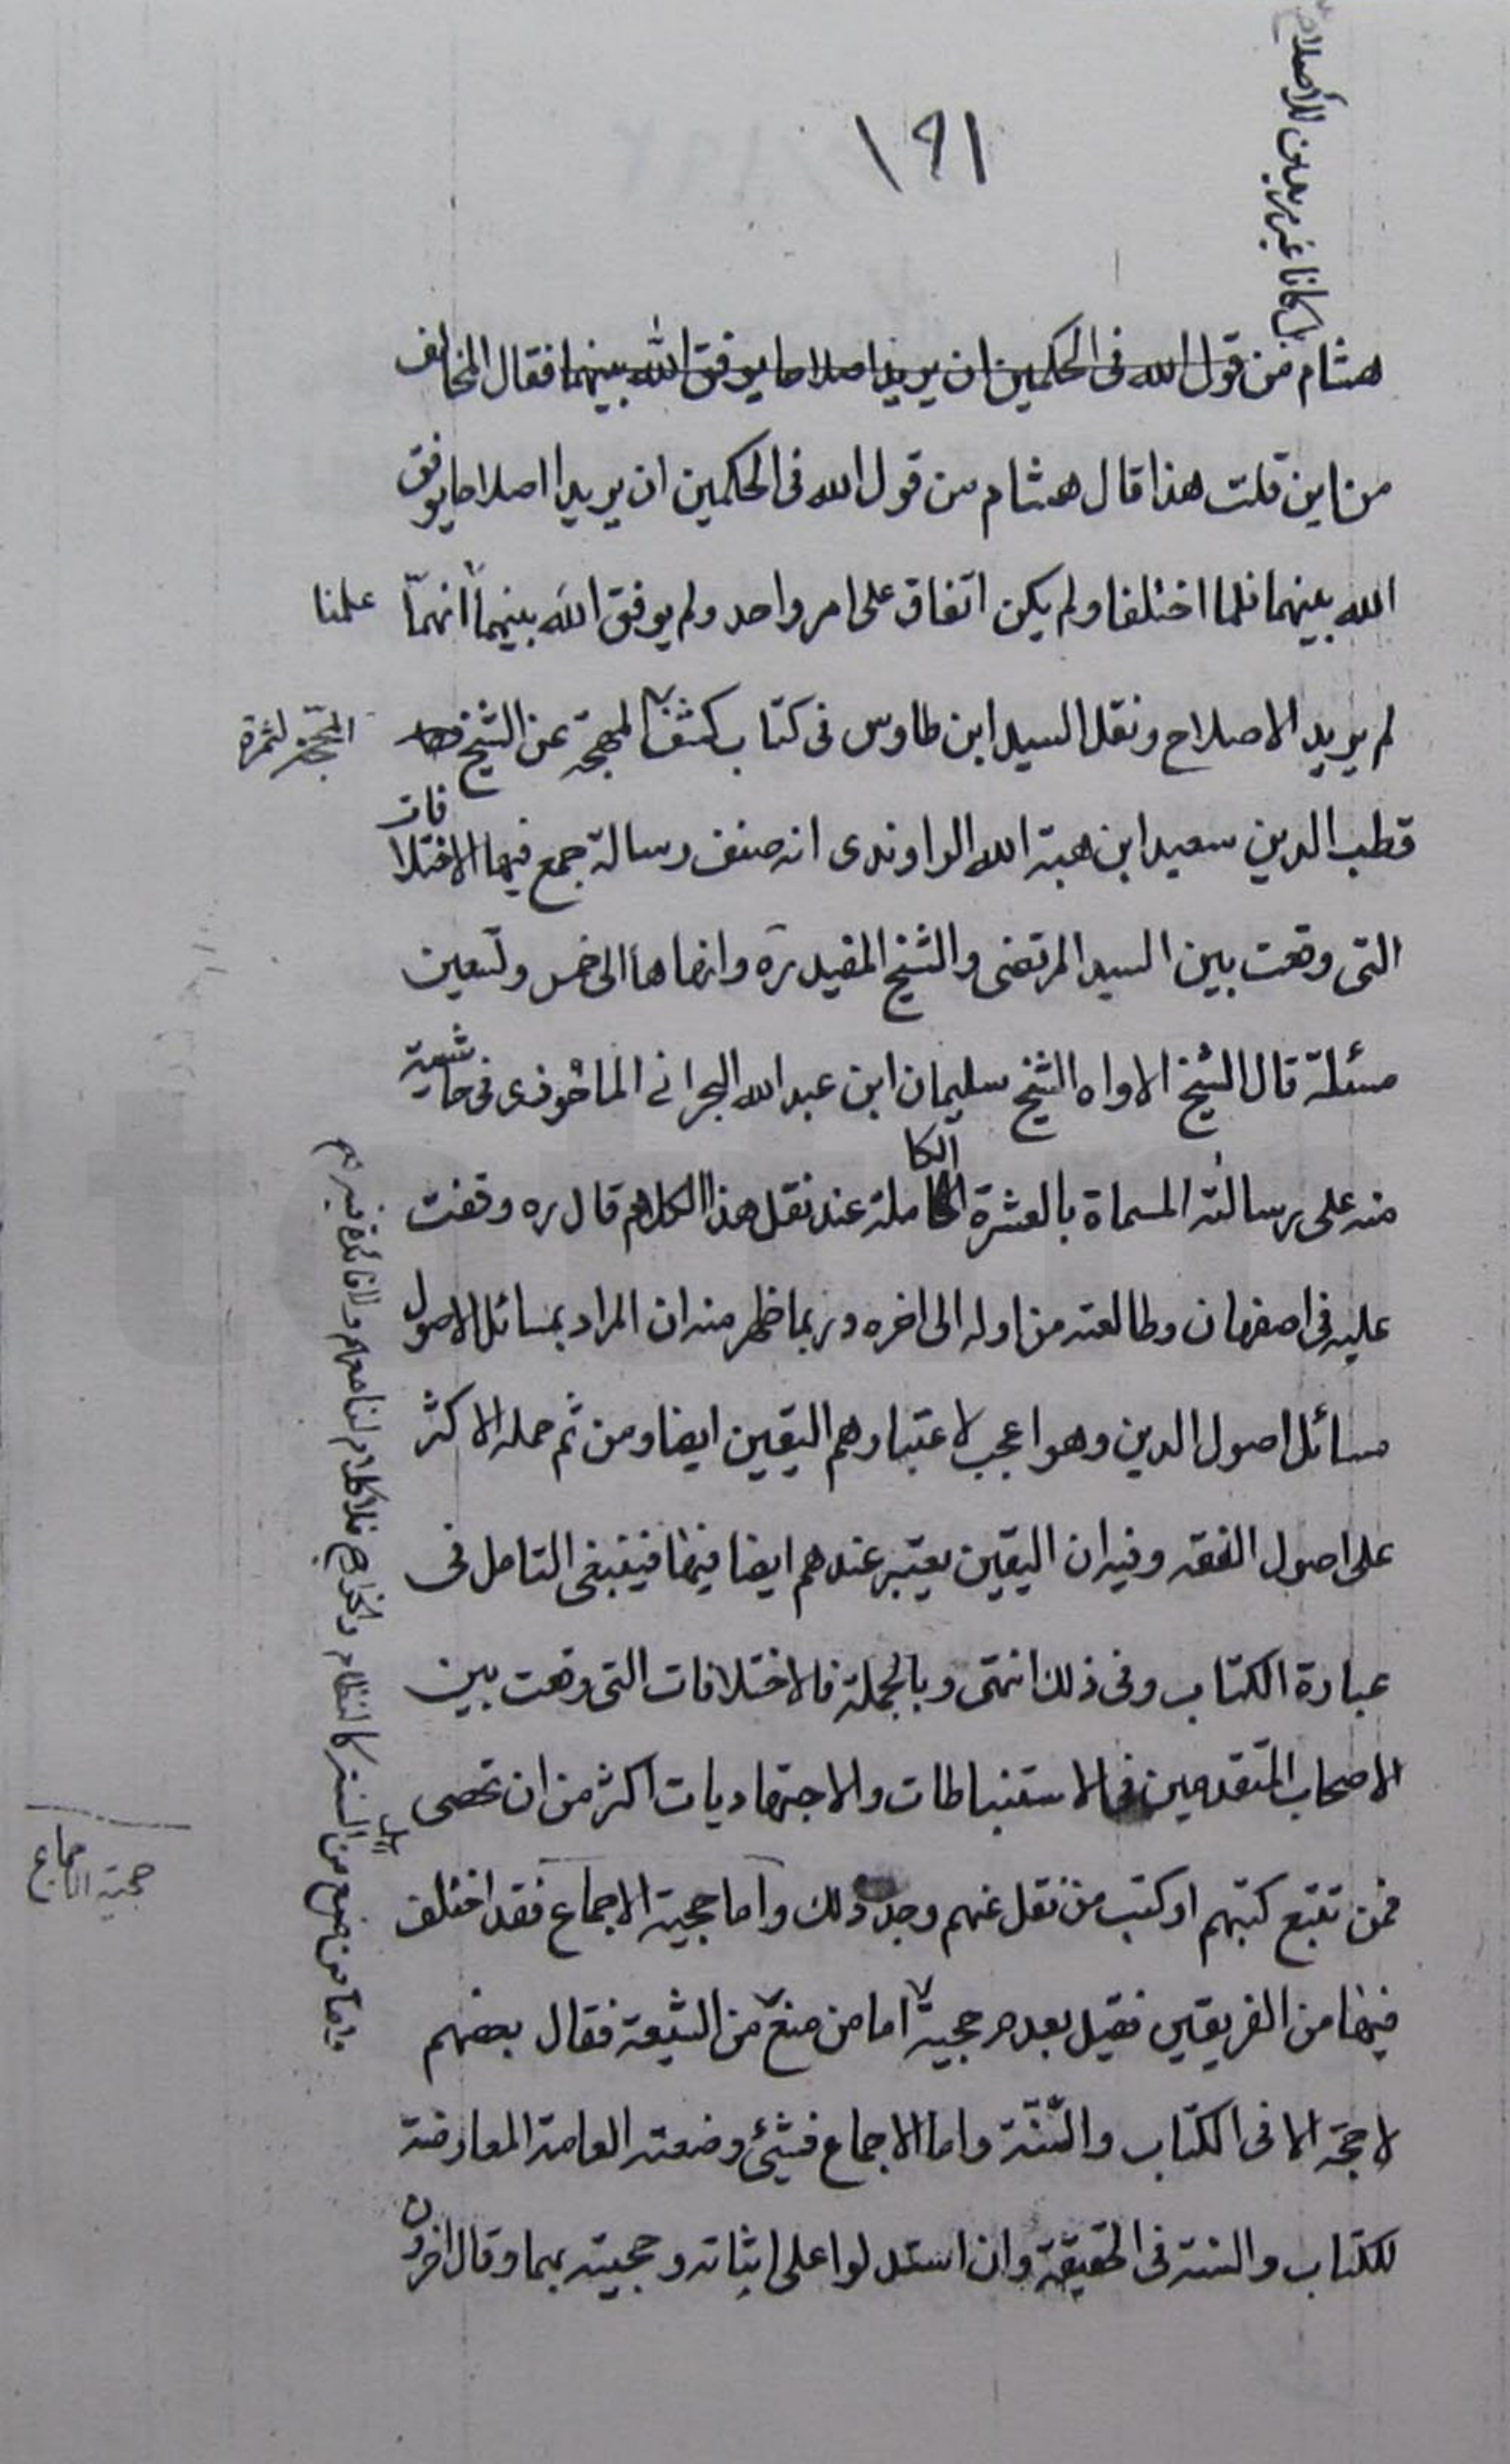 ١٩١
بل كانا غير مريدين للأصلاح
هشام من قول الله فى الحكمين ان يريدا اصلاحا يوفق الله بينهما فقال المخالف
من اين قلت هذا قال هشام من قول الله فى الحكمين ان يريدا اصلاحا يوفق
الله بينهما فلما اختلفا ولم يكن اتفاق على امر واحد ولم يوفق الله بينهما علمنا انهما
لم يريدا الاصلاح ونقل السيد ابن طاوس فى كتاب كشف المهجة عن الشيخ
المحجة لثمرة
قطب الدين سعيد ابن هبة الله الراوندى انه صنف رسالة جمع فيها الاختلافات
التى وقعت بين السيد المرتضى والشيخ المفيد ره وانهاها الى خمس وتسعين
مسئلة قال الشيخ الاواه الشيخ سليمان ابن عبد الله البحرانى الماحوزى فى حاشية
منه على رسالته المسماة بالعشرة الكاملة عند نقل هذا الكلام قال ره وقفت
عليه فى اصفهان وطالعته من اوله الى اخره وربما ظهر منه ان المراد بمسائل الاصول
مسائل اصول الدين وهو اعجب لاعتبارهم اليقين ايضا ومن ثم حمله الاكثر
على اصول الفقه وفيه ان اليقين يعتبر عندهم ايضا فيها فينبغى التامل فى
عبارة الكتاب وفى ذلك انتهى وبالجملة فالاختلافات التى وقعت بين
الاصحاب المتقدمين فى الاستنباطات والاجتهاديات اكثر من ان تحصى
فمن تتبع كتبهم او كتب من نقل عنهم وجد ذلك واما حجية الاجماع فقد اختلف
فيها من الفريقين فقيل بعدم حجية اما من منع من الشيعة فقال بعضهم
لا حجة الا فى الكتاب والسّنّة واما الاجماع فشئ وضعته العامة المعارضة
للكتاب والسنة فى الحقيقة وان استدلوا على اثباته وحجيته بهما وقال اخرون
حجية الاجماع
واما من منع من اهل السنة كالنظام والخوارج فلا كلام لنا معهم ولا فائدة فيه